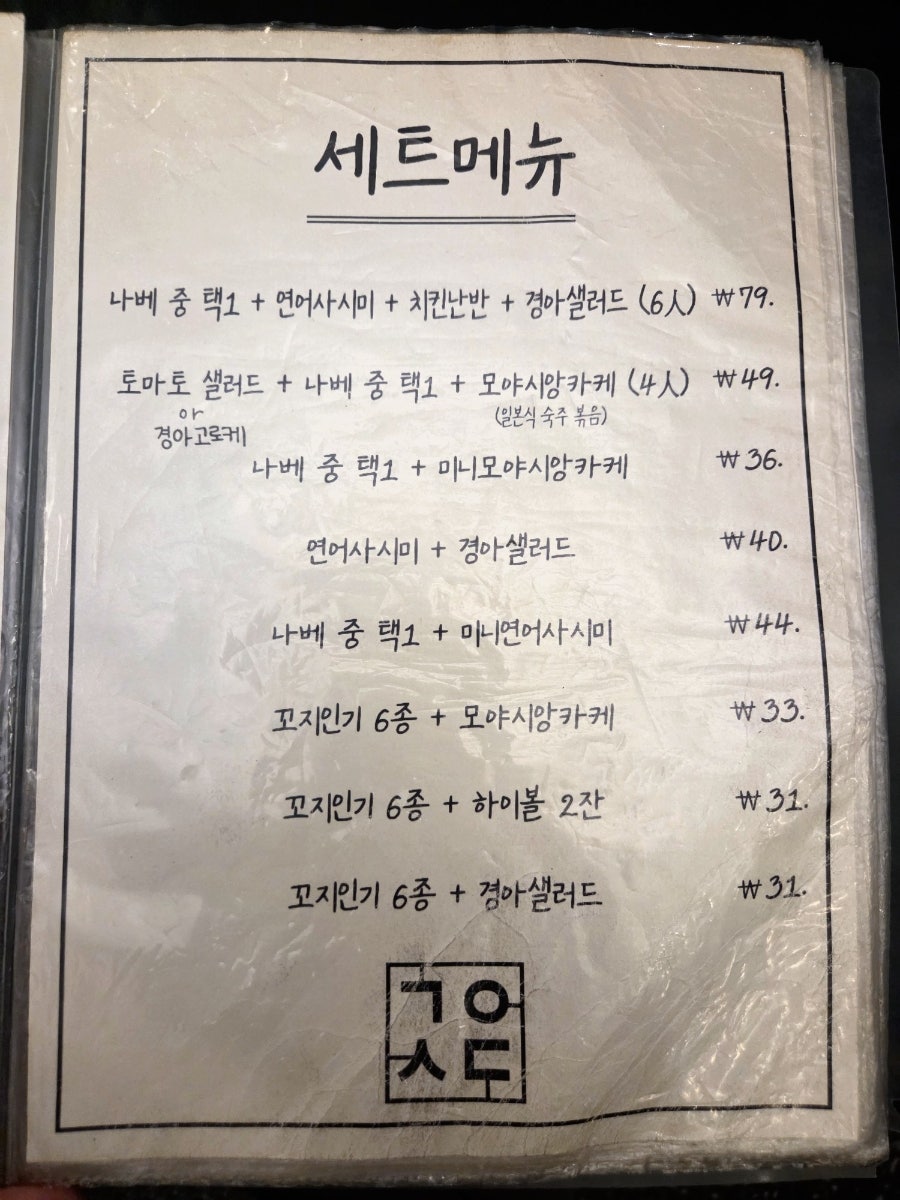 세트메뉴
나베 중 택1 + 연어사시미 + 치킨난반 + 경아샐러드 (6人) ₩79.
토마토 샐러드 + 나베 중 택1 + 모야시앙카케 (4人) ₩49.
or
(일본식 숙주 볶음)
경아고로케
나베 중 택1 + 미니모야시앙카케 ₩36.
연어사시미 + 경아샐러드 ₩40.
나베 중 택1 + 미니연어사시미 ₩44.
꼬지인기 6종 + 모야시앙카케 ₩33.
꼬지인기 6종 + 하이볼 2잔 ₩31.
꼬지인기 6종 + 경아샐러드 ₩31.